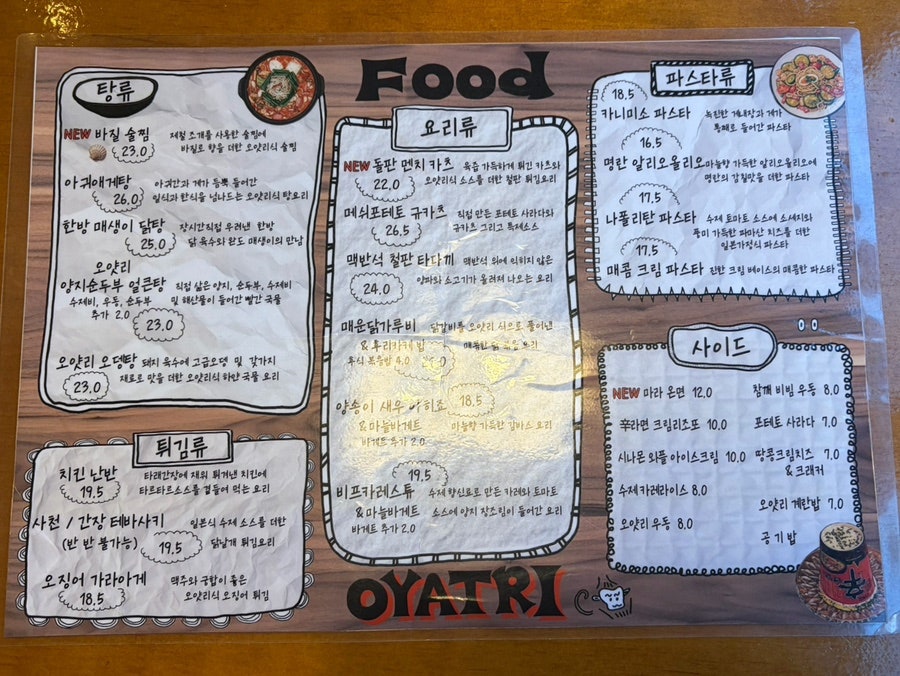 Food
탕류
NEW 바질 술찜
23.0
제철 조개를 사용한 술찜에
바질로 향을 더한 오얏리식 술찜
아귀애게탕
26.0
아귀간과 게가 듬뿍 들어간
일식과 한식을 넘나드는 오얏리식 탕요리
한방 매생이 닭탕
25.0
장시간직접 우려낸 한방
닭 육수와 완도 매생이의 만남
오얏리
양지순두부 얼큰탕
수제비, 우동, 순두부
추가 2.0
23.0
직접 삶은 양지, 순두부, 수제비
및 해산물이 들어간 빨간 국물
오얏리 오뎅탕
23.0
돼지 육수에 고급오뎅 및 갖가지
재료로 맛을 더한 오얏리식 하얀 국물 요리
튀김류
치킨 난반
19.5
타래간장에 재워 튀겨낸 치킨에
타르타르소스를 곁들여 먹는 요리
사천 / 간장 테바사키
(반 반 불가능)
19.5
일본식 수제 소스를 더한
닭날개 튀김요리
오징어 가라아게
18.5
맥주와 궁합이 좋은
오얏리식 오징어 튀김
요리류
NEW 돌판 멘치 카츠
22.0
육즙 가득하게 튀긴 카츠와
오얏리식 소스를 더한 철판 튀김요리
메쉬포테토 규카츠
26.5
직접 만든 포테토 사라다와
규카츠 그리고 특제소스
맥반석 철판 타다끼
24.0
맥반석 위에 익히지 않은
양파와 소고기가 올려져 나오는 요리
매운닭가루비
&후리카케 밥
후식 볶음밥 4.0
닭갈비를 오얏리 식으로 풀어낸
매콤한 닭 볶음 요리
양송이 새우 아히죠
18.5
&마늘바게트
바게트 추가 2.0
마늘향 가득한 감바스 요리
19.5
비프카레스튜
&마늘바게트
바게트 추가 2.0
수제 향신료로 만든 카레와 토마토
소스에 양지 장조림이 들어간 요리
파스타류
18.5
카니미소 파스타
녹진한 게내장과 게가
통째로 들어간 파스타
16.5
명란 알리오올리오
마늘향 가득한 알리오올리오에
명란의 감칠맛을 더한 파스타
17.5
나폴리탄 파스타
수제 토마토 소스에 소세지와
풍미 가득한 파마산 치즈를 더한
일본가정식 파스타
17.5
매콤 크림 파스타
진한 크림 베이스의 매콤한 파스타
사이드
NEW 마라 온면 12.0
참깨 비빔 우동 8.0
辛라면 크림리조또 10.0
포테토 사라다 7.0
시나몬 와플 아이스크림 10.0
땅콩크림치즈 7.0
& 크래커
수제 카레라이스 8.0
오얏리 계란밥 7.0
오얏리 우동 8.0
공 기 밥
OYATRI